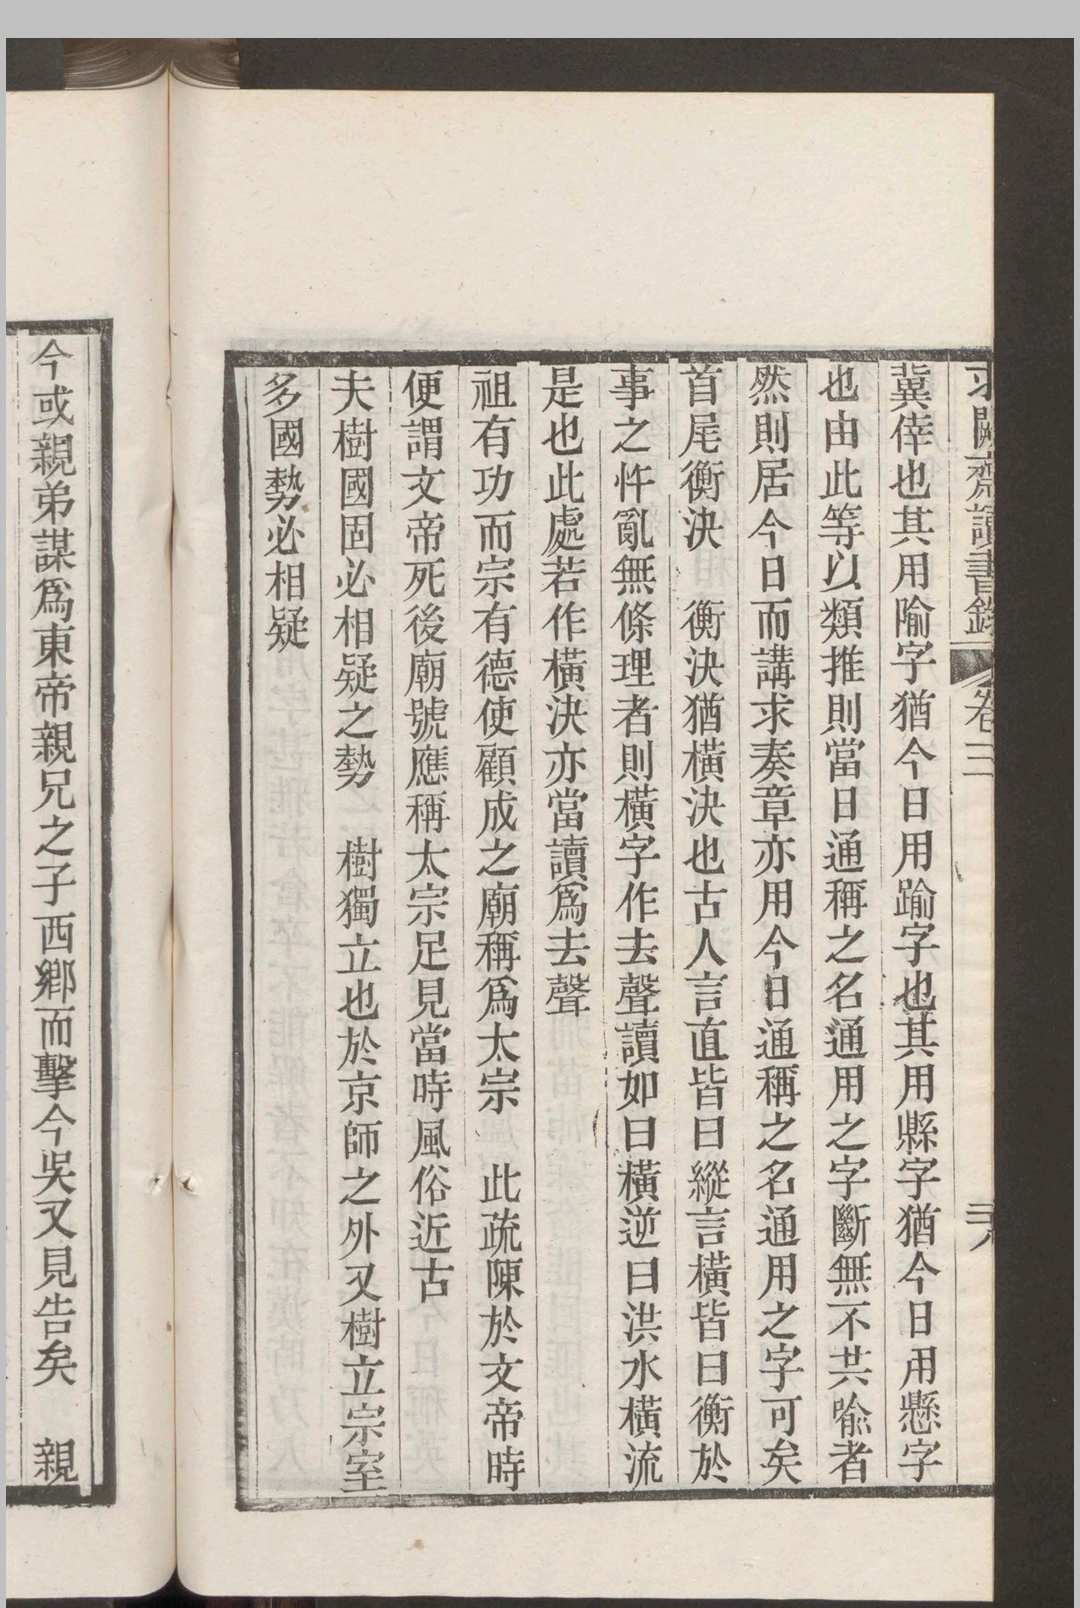 求闕齋讀書錄 卷三 二六
冀倖也其用隃字猶今日用踰字也其用縣字猶今日用懸字
也由此等以類推則當日通稱之名通用之字斷無不共喩者
然則居今日而講求奏章亦用今日通稱之名通用之字可矣
首尾衡決 衡決猶橫決也古人言直皆曰縱言橫皆曰衡於
事之忤亂無條理者則橫字作去聲讀如曰橫逆曰洪水橫流
是也此處若作橫決亦當讀爲去聲
祖有功而宗有德使顧成之廟稱爲太宗 此疏陳於文帝時
便謂文帝死後廟號應稱太宗足見當時風俗近古
夫樹國固必相疑之勢 樹獨立也於京師之外又樹立宗室
多國勢必相疑
今或親弟謀爲東帝親兄之子西鄉而擊今吳又見告矣 親